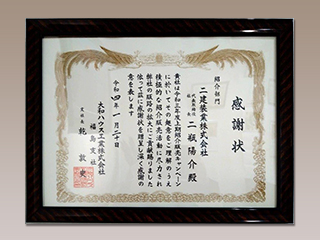 感謝状
紹介部門
二建装業株式会社
代表取締役
社長 二瓶陽介殿
貴社は令和三年度上期紹介販売キャンペーン
に於いてその趣意をご理解のうえ
積極的な紹介販売活動に尽力され
弊社の販路の拡大にご貢献賜りました
依って茲に感謝状を贈呈し深く感謝の
意を表します
令和四年一月二十日
大和ハウス工業株式会社
福島支社
支社長